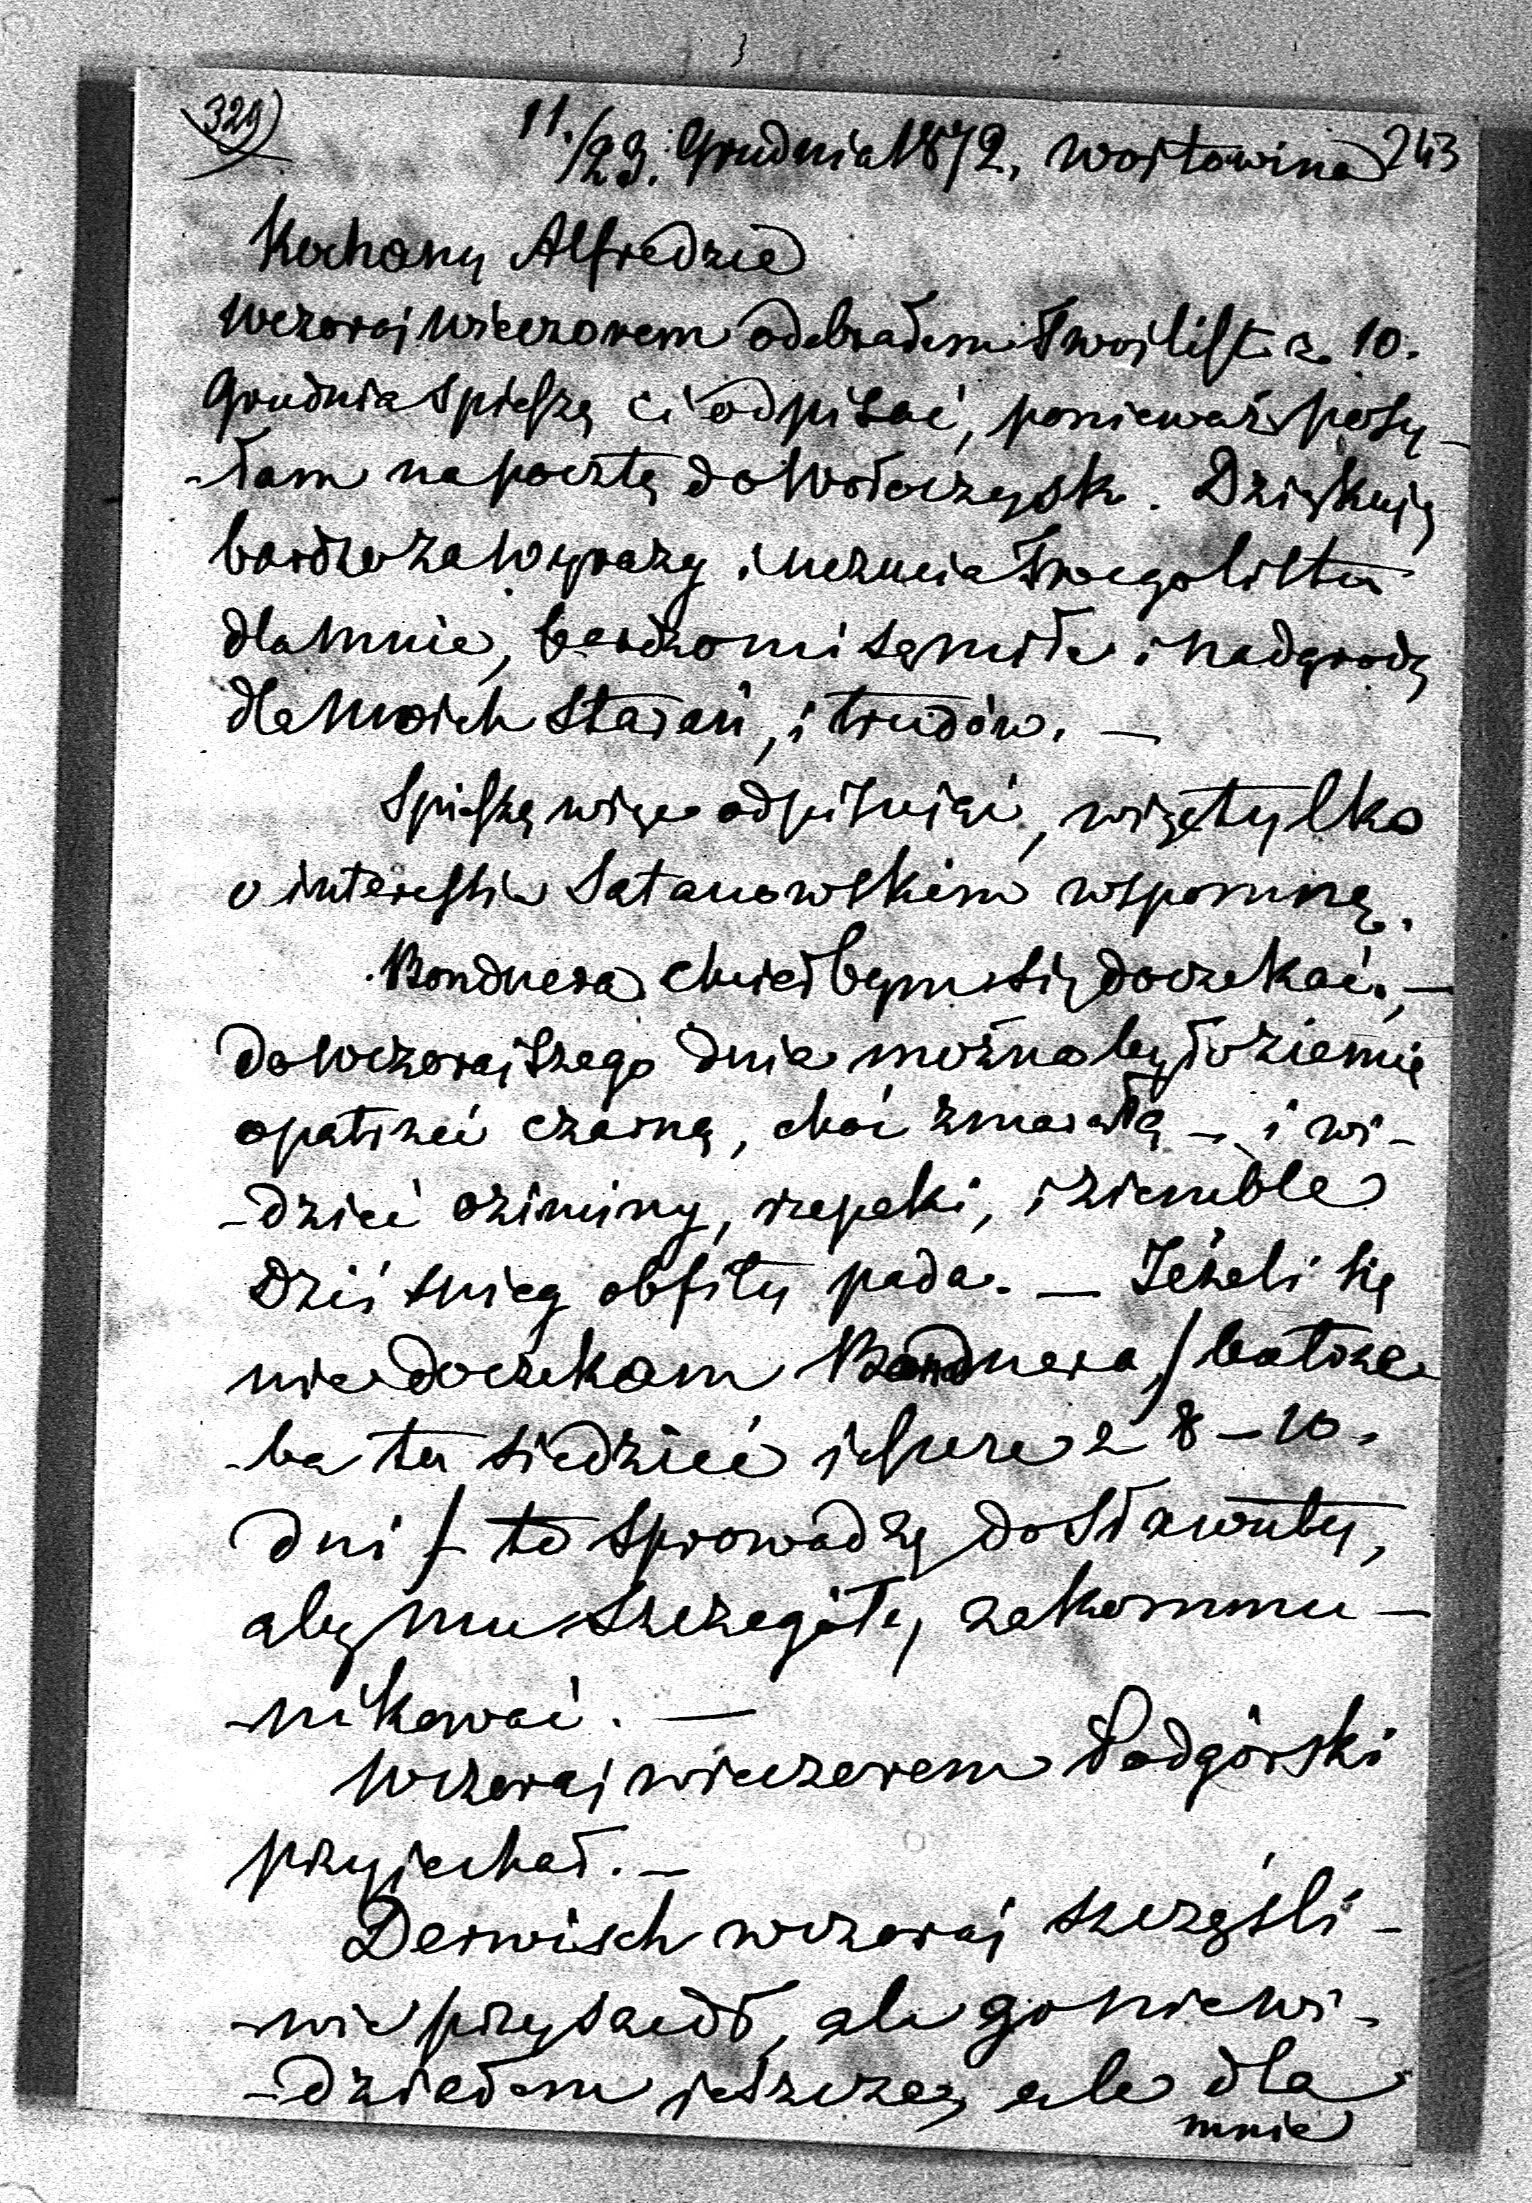 329)
11./23. Grudnia 1872, Wojtowina 243
Kochany Alfredzie
Wczoraj wieczorem odebrałem Twoj list z 10.
Grudnia spieszę ci odpisać, ponieważ posy-
-łam na pocztę do Wołoczysk. Dziękuję
bardzo za wyrazy i uczucia Twego listu
dla mnie, bardzo mi są miłe i nadgrodą
dla moich starań, i trudów. —
Spieszę więc odpisując, więc tylko
o interessie Satanowskim wspomnę.
Bondnera chciałbym się doczekać, —
do wczorajszego dnia można było ziemię
opatrzeć czarną, choć zmarzłą — i wi-
-dzieć oziminy, rzepaki, i ziemble
Dziś snieg obfity pada. — Jeżeli się
nie doczekam Bondnera / bo trze-
-ba tu siedzieć jeszcze z 8 – 10.
dni / to sprowadzę do Sławuty,
aby mu szczegóły zakommu-
-nikować. —
Wczoraj wieczorem Podgórski
przyjechał. —
Derwisch wczoraj szczęśli-
-wie przyszedł, ale go niewi-
-działem jeszcze, ale dla
mnie